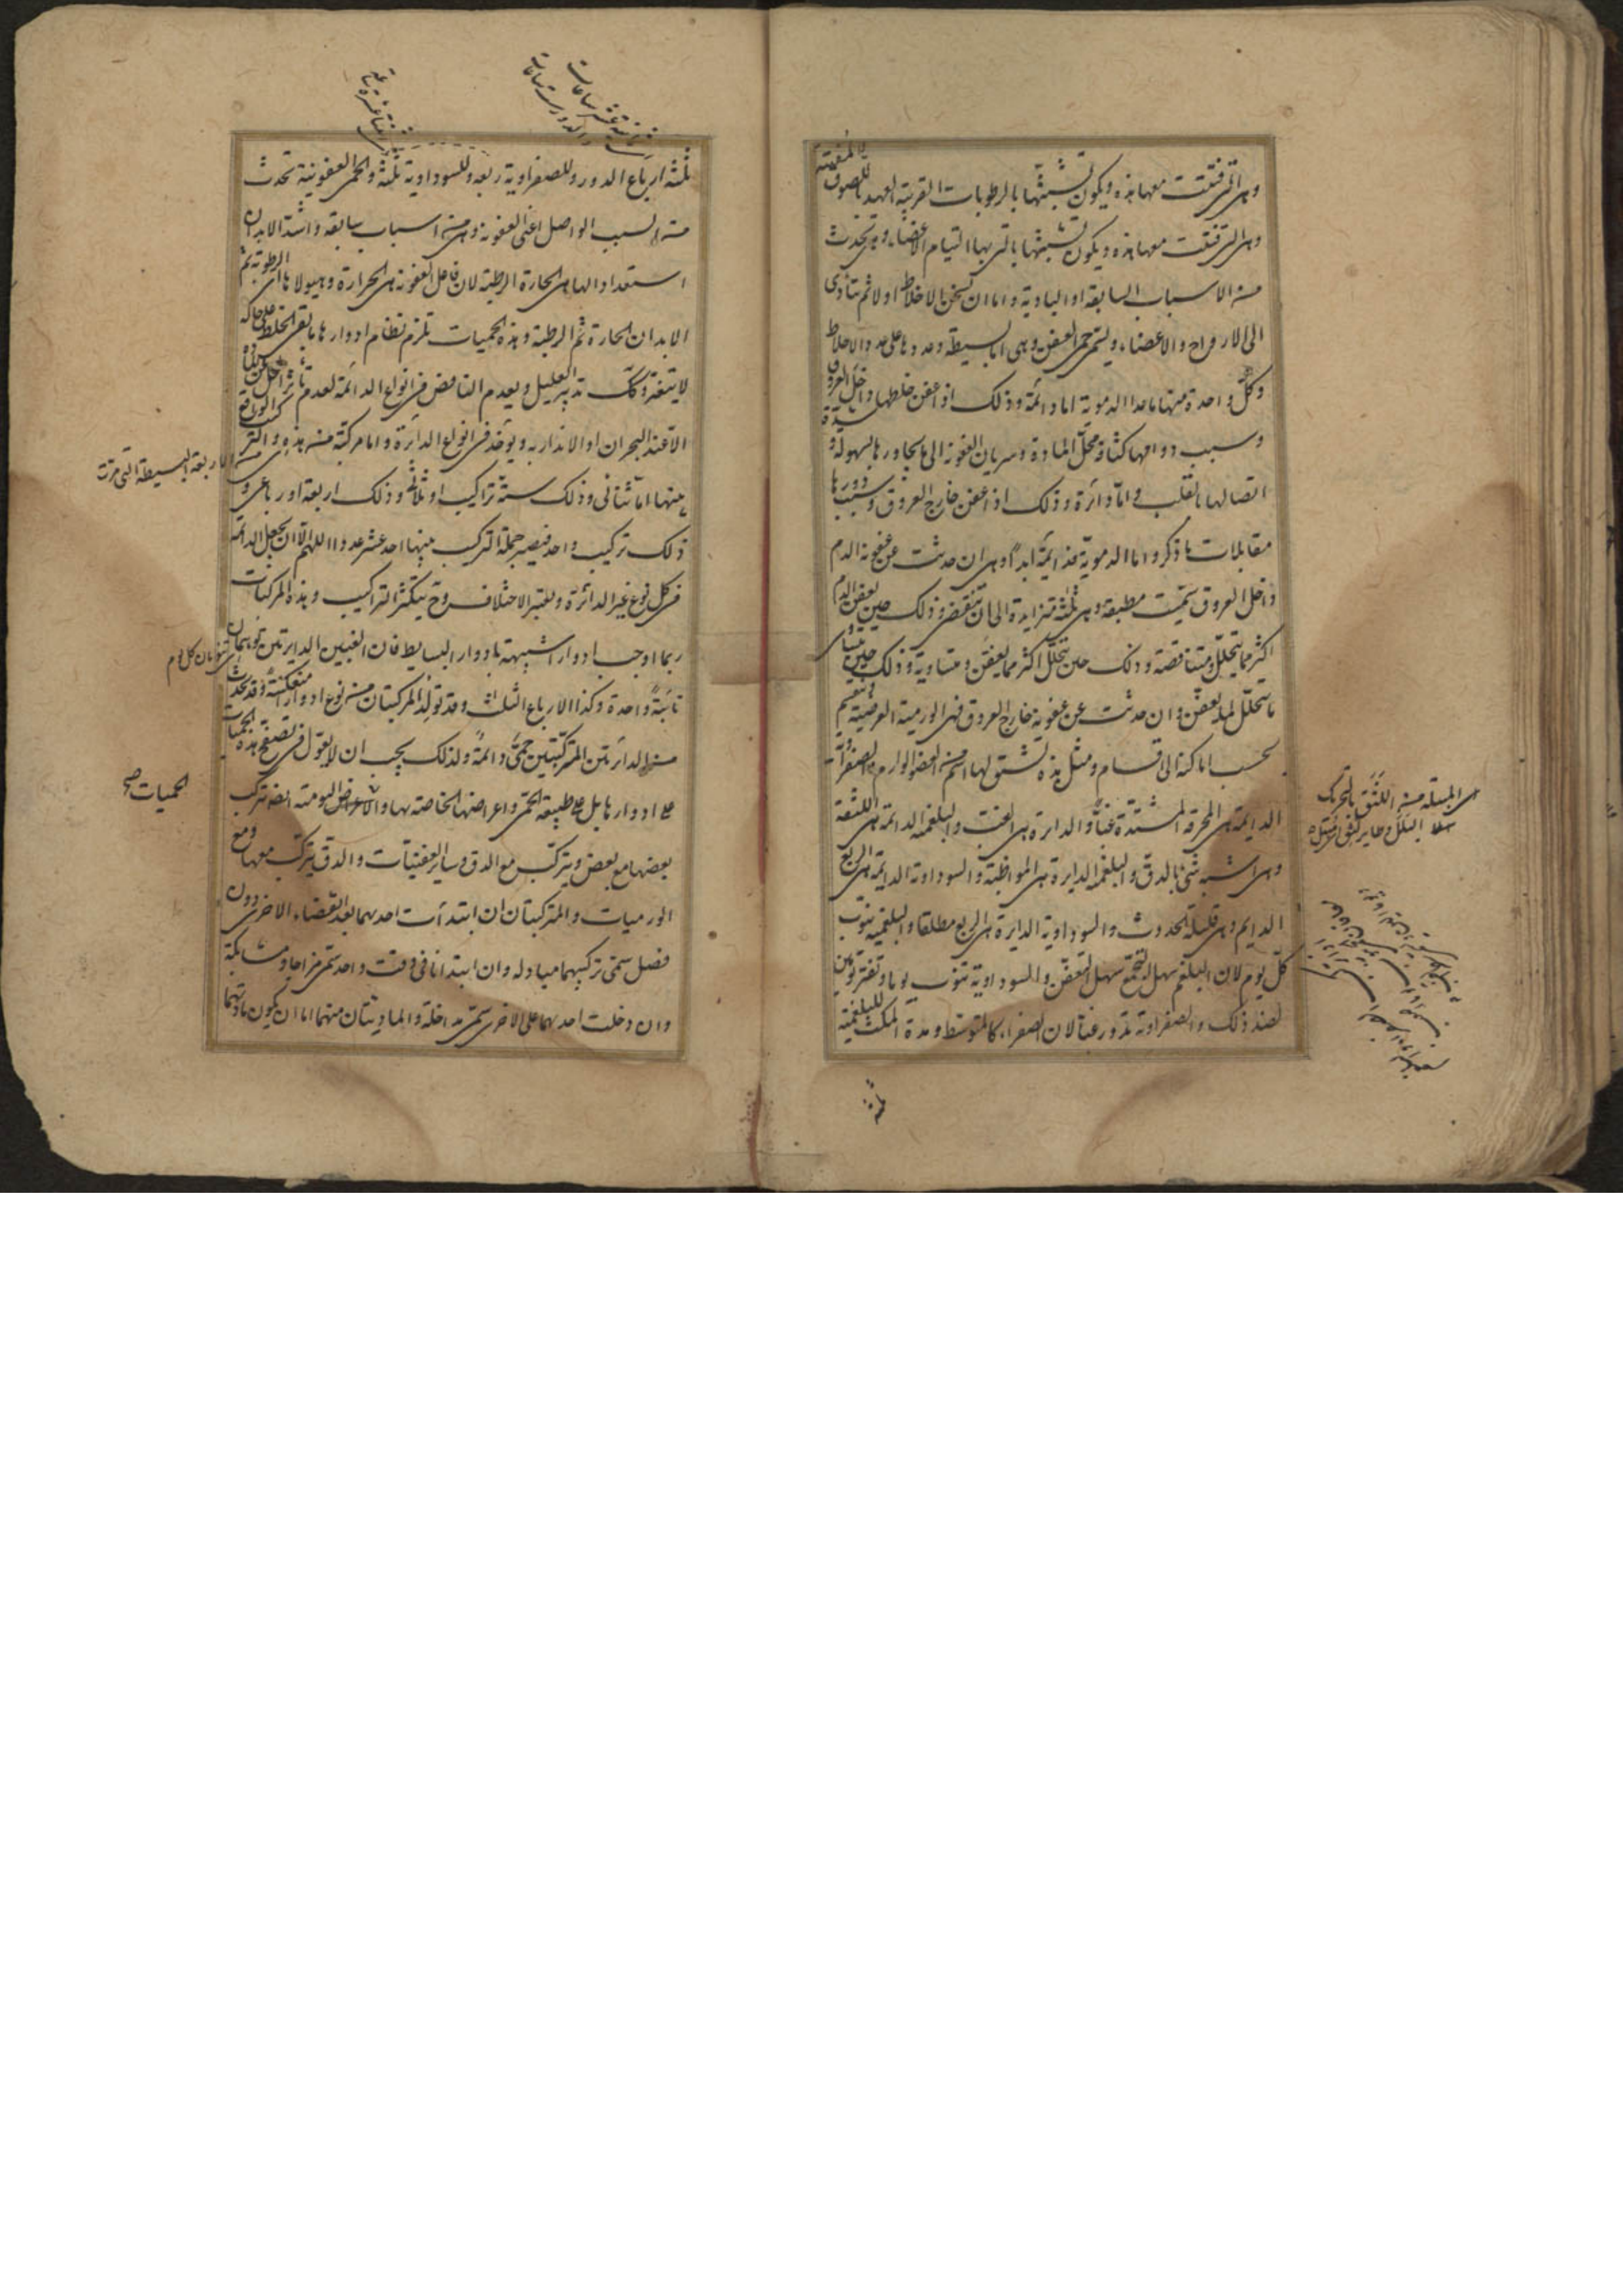 وهى التى فنيت معها هذه ويكون تشبثها بالرطوبات القريبة العهد بالصوق المفتتة
وهى التى فنيت معها هذه ويكون تشبثها بالتى بها التيام الاعضاء وهى تحدث
من الاسباب السابقة او البادية واما ان تسخن الاخلاط اولا ثم يتأدى
الى الارواح والاعضاء ويسمى حمى العفن وهى اما بسيطة وعددها على عدد الاخلاط
وكل واحدة منها ما عدا الدموية اما دائمة وذلك اذا عفن خلطها داخل العروق
وسبب دوامها كثافة محل المادة وسريان العفونة الى ما يجاورها بسهولة و
اتصالها بالقلب واما دائرة وذلك اذا عفن خارج العروق وسبب دورها
مقابلات ما ذكر واما الدموية فدائمة ابدا وهى ان حدثت عن عفونة الدم
داخل العروق سميت مطبقة وهى ثلثة متزايدة الى ان تنقضى وذلك حين يعفن الدم
اكثر مما يتحلل ومتناقصة وذلك حين يتحلل اكثر مما يعفن ومتساوية وذلك حين يتساوى
ما يتحلل لما يعفن وان حدثت عن عفونة خارج العروق فهى الورمية العرضية وتنقسم
بحسب اماكنه الى اقسام ومثل هذه تشتق لها اسم من العضو الوارم والصفراوية
الدايمة هى المحرقة المشتدة غبا والدايرة هى الغب والبلغمية الدايمة هى اللثقة
وهى اشبه شئ بالدق والبلغمية الدايرة هى المواظبة والسوداوية الدايمة هى الربع
الدايم وهى قليلة الحدوث والسوداوية الدايرة هى الربع مطلقا والبلغمية تنوب
كل يوم لان البلغم سهل التجمع سهل التعفن والسوداوية تنوب يوما وتفتر يومين
لضد ذلك والصفراوية تدور غبا لان الصفراء كالمتوسط ومدة المكث للبلغمية
هى المبتلة من اللثق بالتحريك
ثلثة
ثلثة ارباع الدور وللصفراوية ربعه وللسوداوية ثلثه والحمى العفونية تحدث
من السبب الواصل اعنى العفونة وهى من اسباب سابقة واشد الابدان
استعدادا لها هى الحارة الرطبة لان فاعل العفونة هى الحرارة وهيولاها هى الرطوبة ثم
الابدان الحارة ثم الرطبة وهذه الحميات تلزم نظام ادوارها ما بقى الخلط على حاله
لا يتغير وكك تدبير العليل ويعدم النافض فى انواع الدائمة لعدم
الا عند البحران او الانذار به ويوخذ فى انواع الدائرة واما مركبة من هذه والتركيب
منها اما ثنائى وذلك ستة تراكيب او ثلاثى وذلك اربعة او رباعى و
ذلك تركيب واحد فيصير جملة التركيب منها احد عشر عددا اللهم الا ان يجعل الدائمة
فى كل نوع غير الدائرة ويعتبر الاختلاف وح يتكثر التراكيب وهذه المركبات
ربما اوجب ادوارا شبيهة بادوار البسايط فان الغبين الدايرتين توهمان
نائبة واحدة وكذا الارباع الثلث وقد تولد المركبتان من نوع ادوارا منعكسة وقد تحدث
من الدائرتين المتركبتين حمى دائمة ولذلك يجب ان لا يعول فى تصفح هذه الحميات
على ادوارها بل على طبيعة الحمى واعراضها الخاصة بها والاعراض اليومية ايضا تتركب
بعضها مع بعض ويتركب مع الدق وساير العفنيات والدق يتركب معها ومع
الورميات والمتركبتان ان ابتدأت احديهما بعد انقضاء الاخرى دون
فصل سمى تركيبهما مبادلة وان ابتدأتا فى وقت واحد سمى مزاجا ومشابكة
وان دخلت احديهما على الاخرى سمى مداخلة والماديتان منهما اما ان يكون مادتهما
الاربعة البسيطة التى مرت
تنوبان كل يوم
الحميات صح